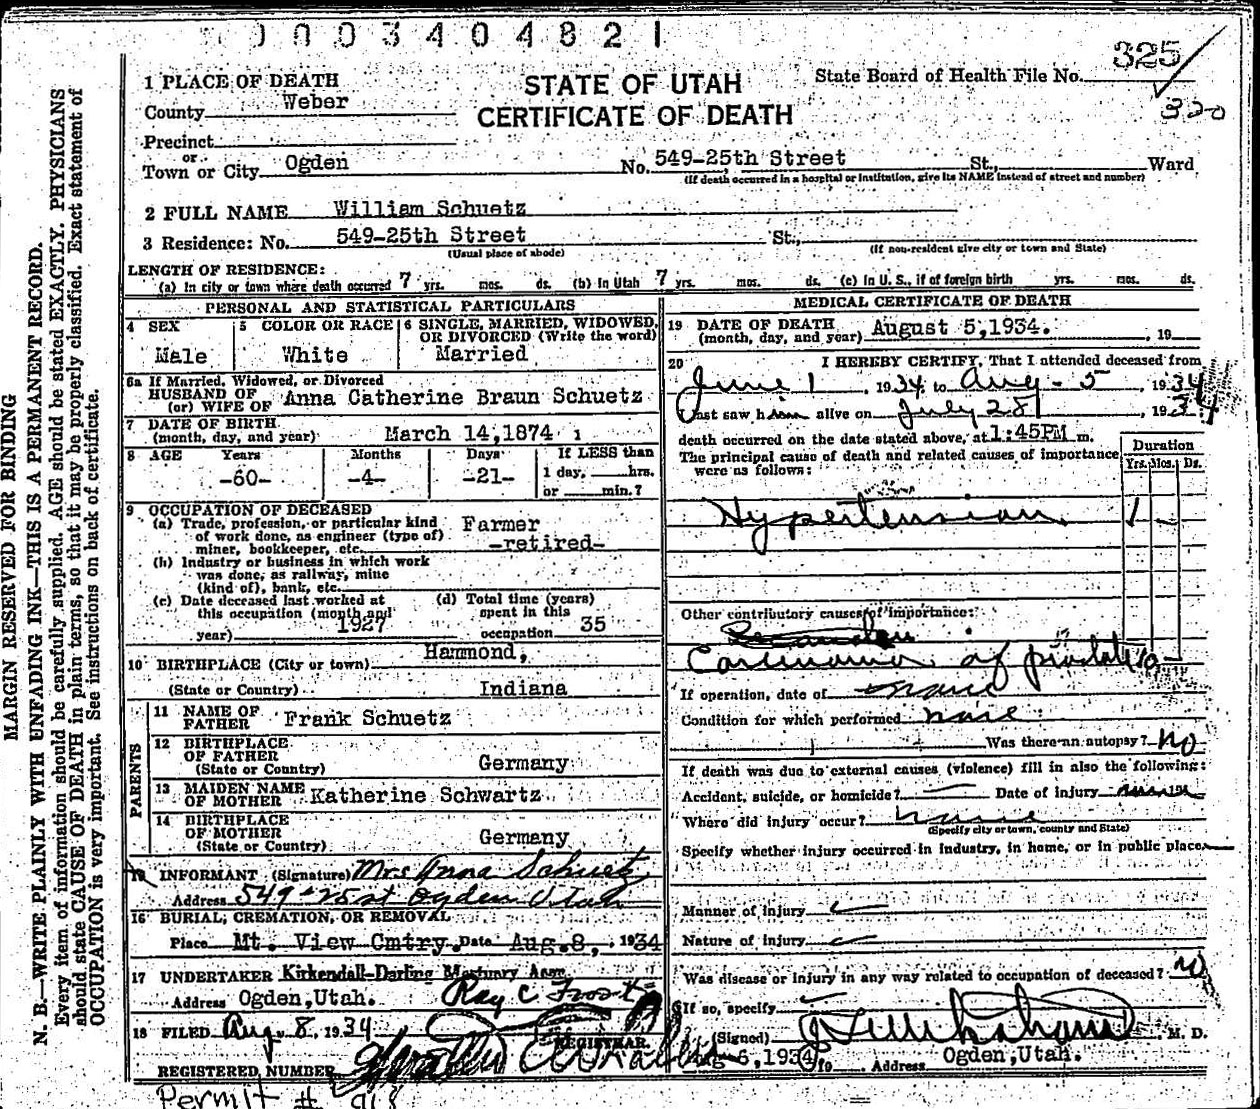 0003404821
1 PLACE OF DEATH
STATE OF UTAH
CERTIFICATE OF DEATH
State Board of Health File No. 325
320
County Weber
Precinct
or
Town or City Ogden No. 549-25th Street St., Ward
(If death occurred in a hospital or institution, give its NAME instead of street and number)
2 FULL NAME William Schuetz
3 Residence: No. 549-25th Street St.,
(Usual place of abode) (If non-resident give city or town and State)
LENGTH OF RESIDENCE:
(a) In city or town where death occurred 7 yrs. mos. ds. (b) In Utah 7 yrs. mos. ds. (c) In U. S., if of foreign birth yrs. mos. ds.
PERSONAL AND STATISTICAL PARTICULARS
4 SEX Male
5 COLOR OR RACE White
6 SINGLE, MARRIED, WIDOWED,
OR DIVORCED (Write the word)
Married
6a If Married, Widowed, or Divorced
HUSBAND OF
(or) WIFE OF Anna Catherine Braun Schuetz
7 DATE OF BIRTH
(month, day, and year) March 14,1874
8 AGE Years Months Days If LESS than
-60- -4- -21- 1 day, hrs.
or min.?
9 OCCUPATION OF DECEASED
(a) Trade, profession, or particular kind
of work done, as engineer (type of)
miner, bookkeeper, etc. Farmer
-retired-
(b) Industry or business in which work
was done, as railway, mine
(kind of), bank, etc.
(c) Date deceased last worked at
this occupation (month and
year) 1927
(d) Total time (years)
spent in this
occupation 35
10 BIRTHPLACE (City or town) Hammond,
(State or Country) Indiana
PARENTS
11 NAME OF
FATHER Frank Schuetz
12 BIRTHPLACE
OF FATHER
(State or Country) Germany
13 MAIDEN NAME
OF MOTHER Katherine Schwartz
14 BIRTHPLACE
OF MOTHER
(State or Country) Germany
15 INFORMANT (Signature) Mrs Anna Schuetz
Address 549-25 st Ogden Utah
16 BURIAL, CREMATION, OR REMOVAL
Place Mt. View Cmtry. Date Aug.8, 1934
17 UNDERTAKER Kirkendall-Darling Mortuary Assn.
Address Ogden,Utah. Ray C Frost
18 FILED Aug. 8, 1934
REGISTRAR.
REGISTERED NUMBER
Permit # 918
MEDICAL CERTIFICATE OF DEATH
19 DATE OF DEATH
(month, day, and year) August 5,1934. , 19
20 I HEREBY CERTIFY, That I attended deceased from
June 1, 1934 to Aug - 5, 1934
I last saw him alive on July 28, 1934
death occurred on the date stated above, at 1:45PM m.
The principal cause of death and related causes of importance
were as follows:
Duration
Yrs. Mos. Ds.
Hypertension 1
Other contributory causes of importance:
Carcinoma of prostate
If operation, date of none
Condition for which performed none
Was there an autopsy? No
If death was due to external causes (violence) fill in also the following:
Accident, suicide, or homicide? Date of injury
Where did injury occur? none
(Specify city or town, county and State)
Specify whether injury occurred in industry, in home, or in public place.
Manner of injury
Nature of injury
Was disease or injury in any way related to occupation of deceased? No
If so, specify
(Signed) M. D.
Aug 6,1934, 19 Address Ogden,Utah.
MARGIN RESERVED FOR BINDING
N. B.—WRITE PLAINLY WITH UNFADING INK—THIS IS A PERMANENT RECORD.
Every item of information should be carefully supplied. AGE should be stated EXACTLY. PHYSICIANS
should state CAUSE OF DEATH in plain terms, so that it may be properly classified. Exact statement of
OCCUPATION is very important. See instructions on back of certificate.